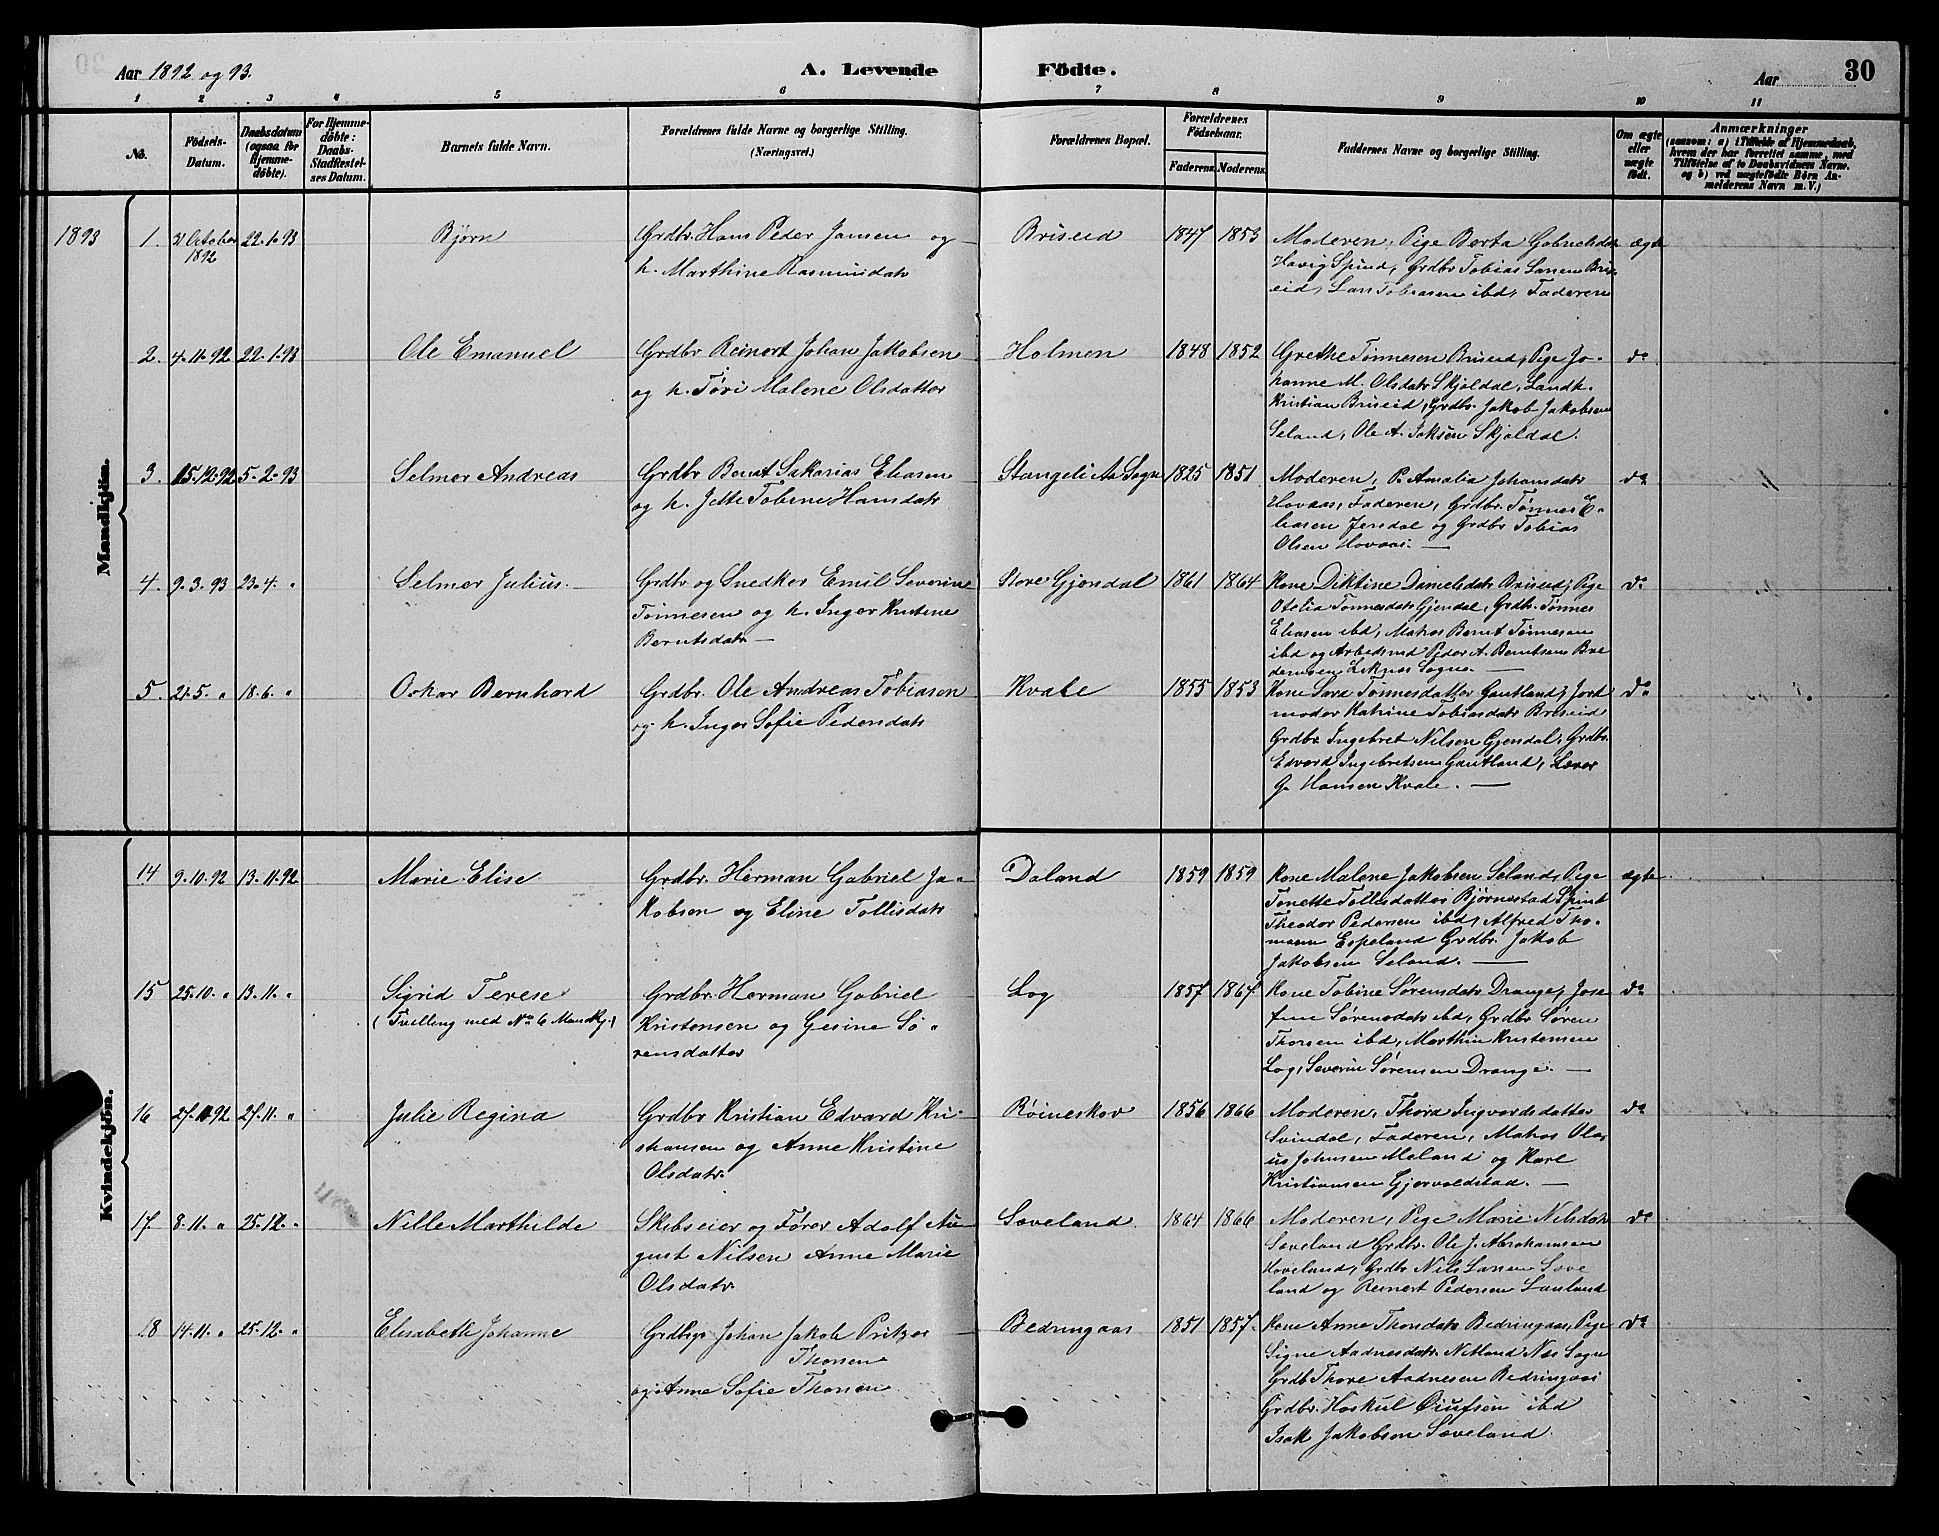 Aar 1892 og 93.
A. Levende Födte.
Aar
30
1 2 3 4 5 6 7 8 9 10 11
No.
Födsels-Datum.
Daabsdatum (ogsaa for Hjemme-döbte).
For Hjemme-döbte: Daabs-Stadfæstel-ses Datum.
Barnets fulde Navn.
Forældrenes fulde Navne og borgerlige Stilling.
(Næringsvei.)
Forældrenes Bopæl.
Forældrenes Födselsaar.
Faderens. Moderens.
Faddernes Navne og borgerlige Stilling.
Om ægte eller uægte født.
Anmærkninger
(saasom: a) i Tilfælde af Hjemmedaab,
hvem der har forrettet samme, med
Tilföielse af to Daabsvidners Navne.
og b) ved uægtefödte Börn An-
melderens Navn m. V.)
Mandkjön.
1893 1. 21 October 1892 22.1.93 Björn
Grdbr. Hans Peder Jansen og
h. Marthine Rasmusdatr
Briseid 1847 1853
Moderen, Pige Berta Gabrielsdatr
Havig Spind, Grdbr Tobias Larsen Bris-
eid, Lars Tobiasen ibd, Faderen
ægte
2. 4.11.92 22.1.93 Ole Emanuel
Grdbr Reinert Johan Jakobsen
og h. Tøri Malene Olsdatter
Holmen 1848 1852
Grethe Tønnesen Briseid, Pige Jo-
hanne M. Olsdatr Skjoldal, Landh.
Kristian Briseid, Grdbr. Jakob Jakobsen
Seland, Ole A. Isaksen Skjoldal.
do
3. 15.12.92 5.2.93 Selmer Andreas
Grdbr Bernt Sakarias Eliasen
og h. Jette Tobine Hansdatr
Stangeli Aa Sogn 1825 1851
Moderen, P. Amalia Johansdatr
Hovaas, Faderen, Grdbr. Tønnes E-
liasen Jerdal og Grdbr Tobias
Olsen Hovaas.
do
4. 9.3.93 23.4. " Selmer Julius.
Grdbr og Snedker Emil Severine
Tønnesen og h. Inger Kristine
Berntsdatr
Store Gjendal 1861 1864
Kone Diktine Danielsdatr Briseid, Pige
Otelia Tønnesdatr Gjendal, Grdb. Tønnes
Eliasen ibd, Matros Bernt Tønnesen
ibd og Arbeidsmd Peder A. Berntsen Bre
demoen Liknes Sogn.
do
5. 21.5. " 18.6. " Oskar Bernhard
Grdbr. Ole Andreas Tobiasen
og h. Inger Sofie Pedersdatr
Kvale 1855 1853
Kone Sara Tønnesdatter Gautland, Jord
moder Katrine Tobiasdatr Briseid
Grdbr. Ingebret Nilsen Gjendal, Grdbr.
Edvard Ingebretsen Gautland, Lærer
G. Hansen Kvale.
do
Kvindekjön.
14 9.10.92 13.11.92 Marie Elise
Grdbr. Herman Gabriel Ja-
kobsen og Eline Tollisdatr
Daland 1859 1859
Kone Malene Jakobsen Seland, Pige
Tonette Tollisdatter Bjørnestad Spind
Theodor Pedersen ibd, Alfred Tho-
masen Espeland Grdbr. Jakob
Jakobsen Seland.
ægte
15 25.10. " 13.11. " Sigrid Terese
(Tvilling med No 6 Mandkj.)
Grdbr. Herman Gabriel
Kristensen og Gesine Sö-
rensdatter
Log 1857 1867
Kone Tobine Sørensdatr Drange, Jose
fine Sørensdatr ibd, Grdbr Søren
Thorsen ibd, Marthin Kristensen
Log, Severin Sørensen Drange.
do
16 27.11.92 27.11. " Julie Regina
Grdbr Kristian Edvard Kri-
stiansen og Anne Kristine
Olsdatr.
Röineskov 1856 1866
Moderen, Thora Ingvardsdatter
Svindal, Faderen, Matros Ola-
us Johnsen Meland og Karl
Kristiansen Gjervoldstad.
do
17 8.11. " 25.12. " Nille Marthilde
Skibseier og Fører Adolf Au-
gust Nilsen Anne Marie
Olsdatr.
Sæveland 1864 1866
Moderen, Pige Marie Nilsdatr
Sæveland Grdbr. Ole J. Abrahamsen
Hoveland, Grdbr Nils Larsen Sæve
land og Reinert Pedersen Lauland
do
18 14.11. " 25.12. " Elisabeth Johanne
Grdbr. Johan Jakob Pritzer
Thorsen
og Anne Sofie Thorsen
Bedringaas 1851 1857.
Kone Anne Thorsdatr Bedringaas, Pige
Signe Aadnesdatr Netland Næs Sogn
Grdb Thore Aadnesen Bedringaas
Grdbr. Høskul Øiufsen ibd
Isak Jakobsen Sæveland.
do